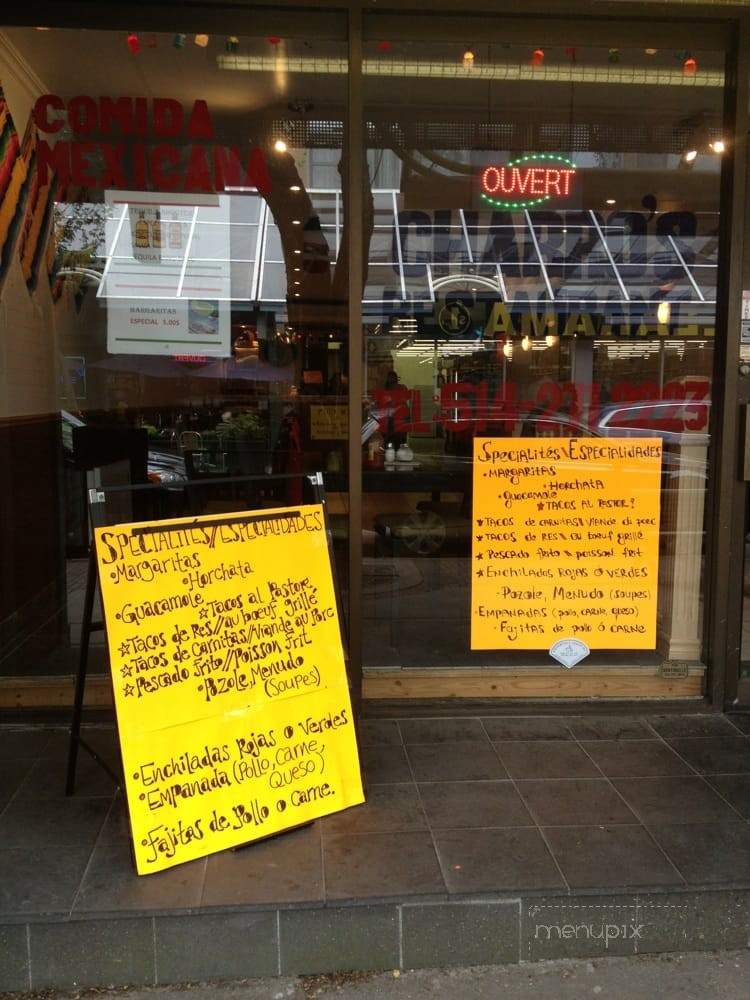 COMIDA
MEXICANA
OUVERT
MARGARITAS
ESPECIAL 5.00$
SPECIALITÉS//ESPECIALIDADES
•Margaritas
•Horchata
•Guacamole
☆Tacos al Pastore
☆Tacos de Res//au boeuf grillé
☆Tacos de Carnitas//Viande au Porc
☆Pescado Frito//Poisson frit
•Pozole, Menudo
(Soupes)
•Enchiladas Rojas o Verdes
•Empanada (Pollo, Carne,
Queso)
•Fajitas de Pollo o Carne.
Specialités\Especialidades
•Margaritas
•Horchata
•Guacamole
★Tacos al Pastor!
★Tacos de carnitas\\viande de porc
★Tacos de Res\\au boeuf grillé
★Pescado frito\\poisson frit
★Enchilados Rojas o Verdes
-Pozole, Menudo (soupes)
-Empanadas (pollo, carne, queso)
-Fajitas de pollo ó Carne
menupix